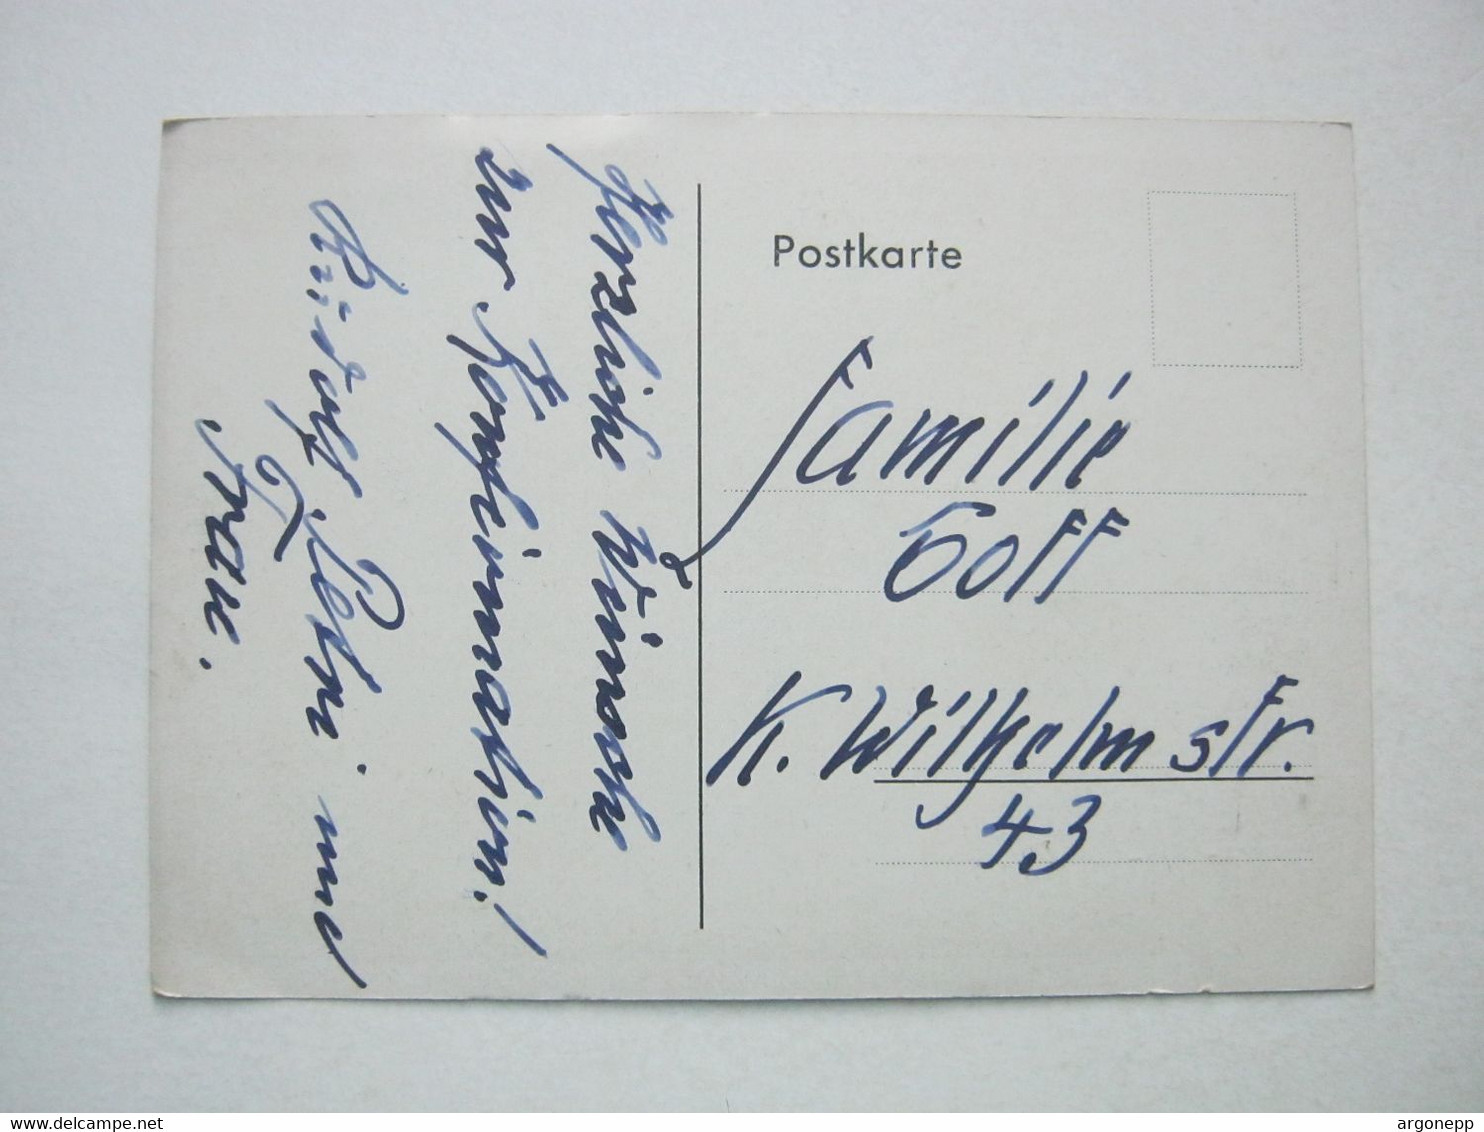 Postkarte
Familie
Goff
K. Wilhelm str.
43
Herzliche Wünsche
zur Konfirmation!
Rudolf Petri und
Frau.
argonepp
www.delcampe.net